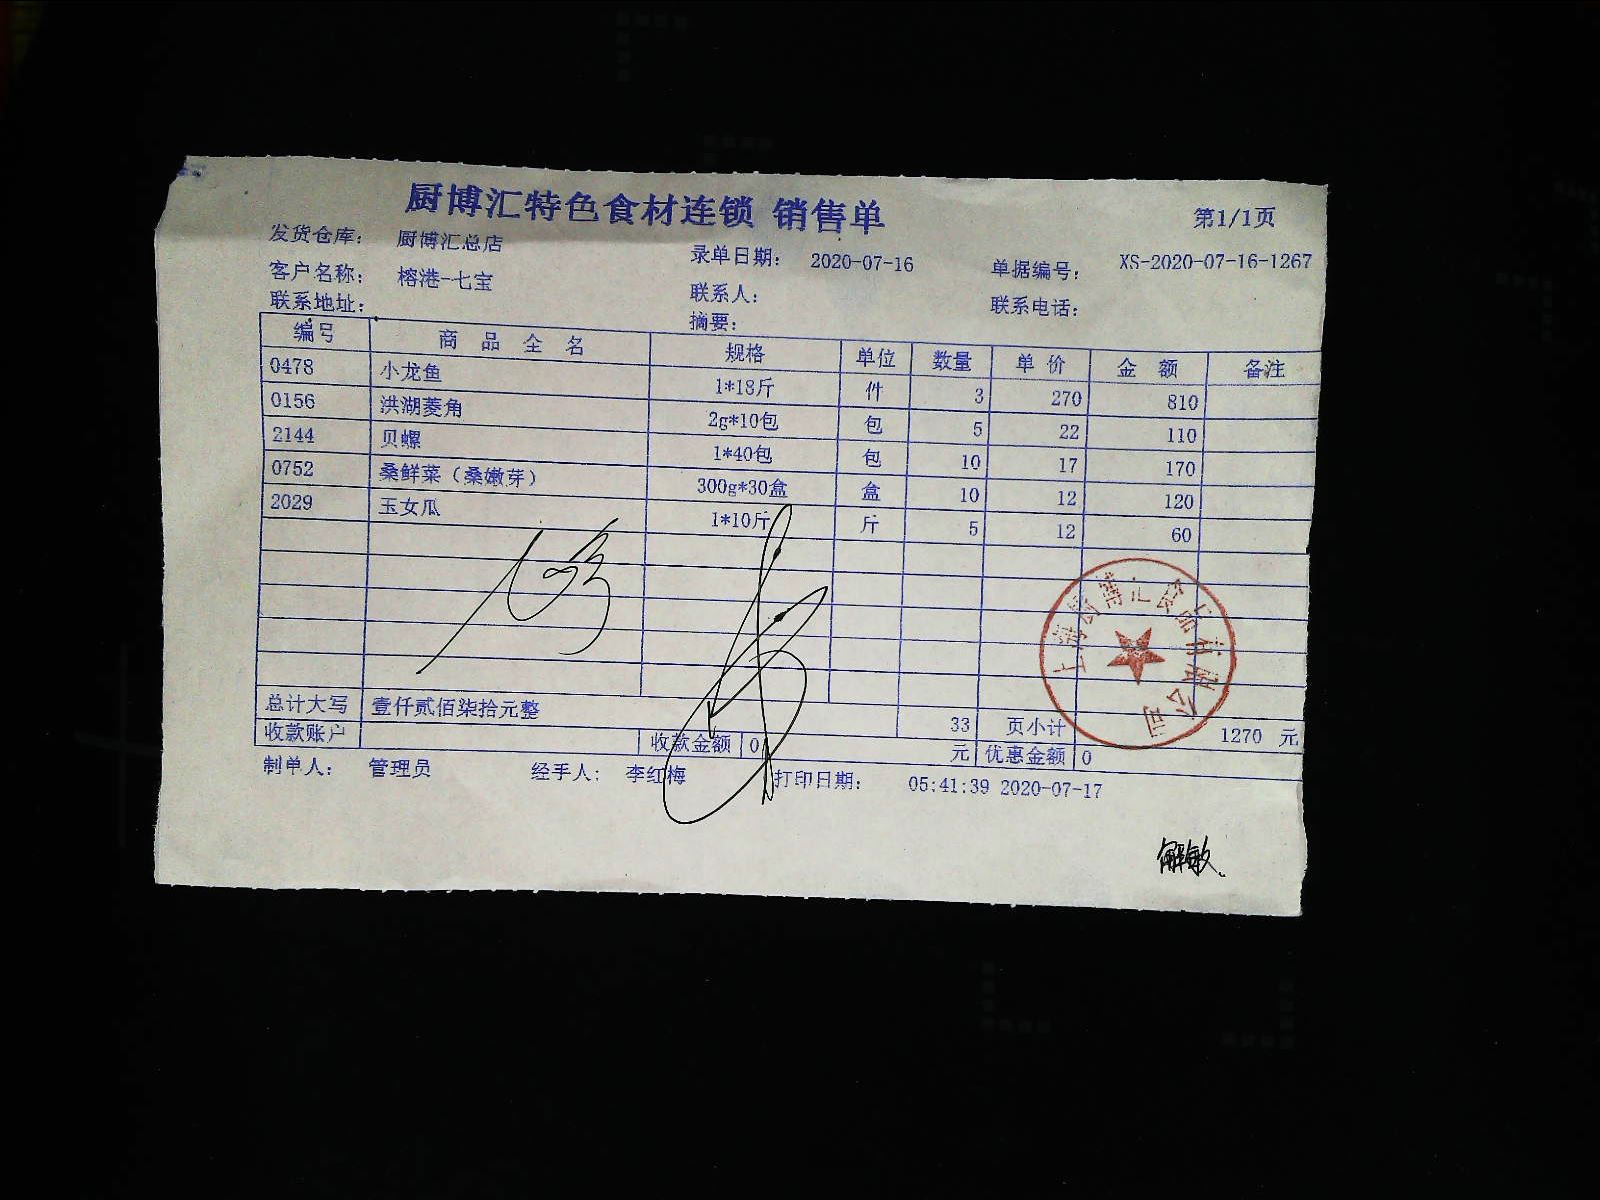 厨博汇特色食材连锁 销售单
第1/1页
发货仓库： 厨博汇总店 录单日期： 2020-07-16 单据编号： XS-2020-07-16-1267
客户名称： 榕港-七宝 联系人： 联系电话：
联系地址： 摘要：
编号 商品全名 规格 单位 数量 单价 金额 备注
0478 小龙鱼 1*18斤 件 3 270 810
0156 洪湖菱角 2g*10包 包 5 22 110
2144 贝螺 1*40包 包 10 17 170
0752 桑鲜菜（桑嫩芽） 300g*30盒 盒 10 12 120
2029 玉女瓜 1*10斤 斤 5 12 60
上海厨博汇食品有限公司
总计大写 壹仟贰佰柒拾元整 33 页小计 1270 元
收款账户 收款金额 0 元 优惠金额 0
制单人： 管理员 经手人： 李红梅 打印日期： 05:41:39 2020-07-17
解敏